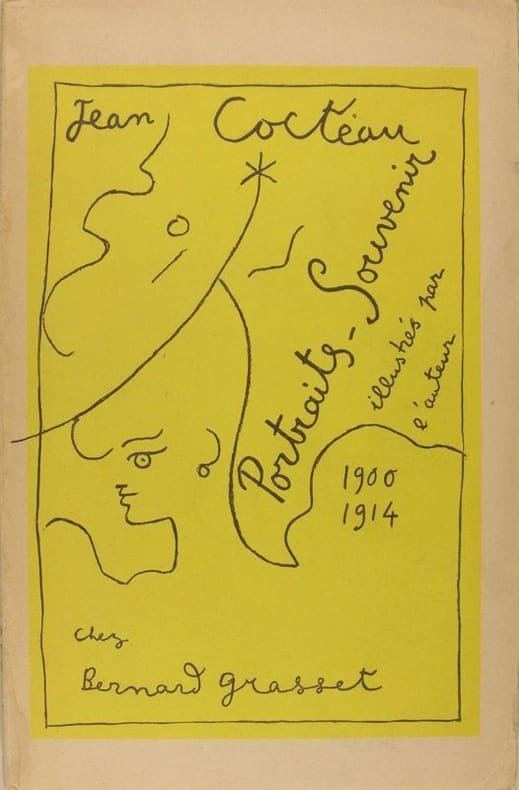 Jean Cocteau
Portraits-Souvenir
illustrés par
l'auteur
1900
1914
chez
Bernard grasset